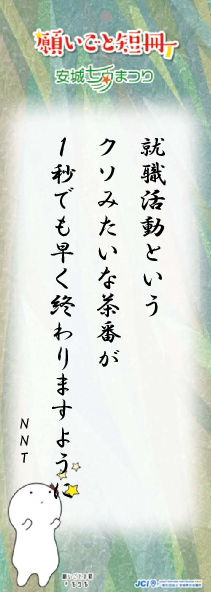 願いごと短冊
安城七夕まつり
就職活動という
クソみたいな茶番が
1秒でも早く終わりますように
NNT
JCI